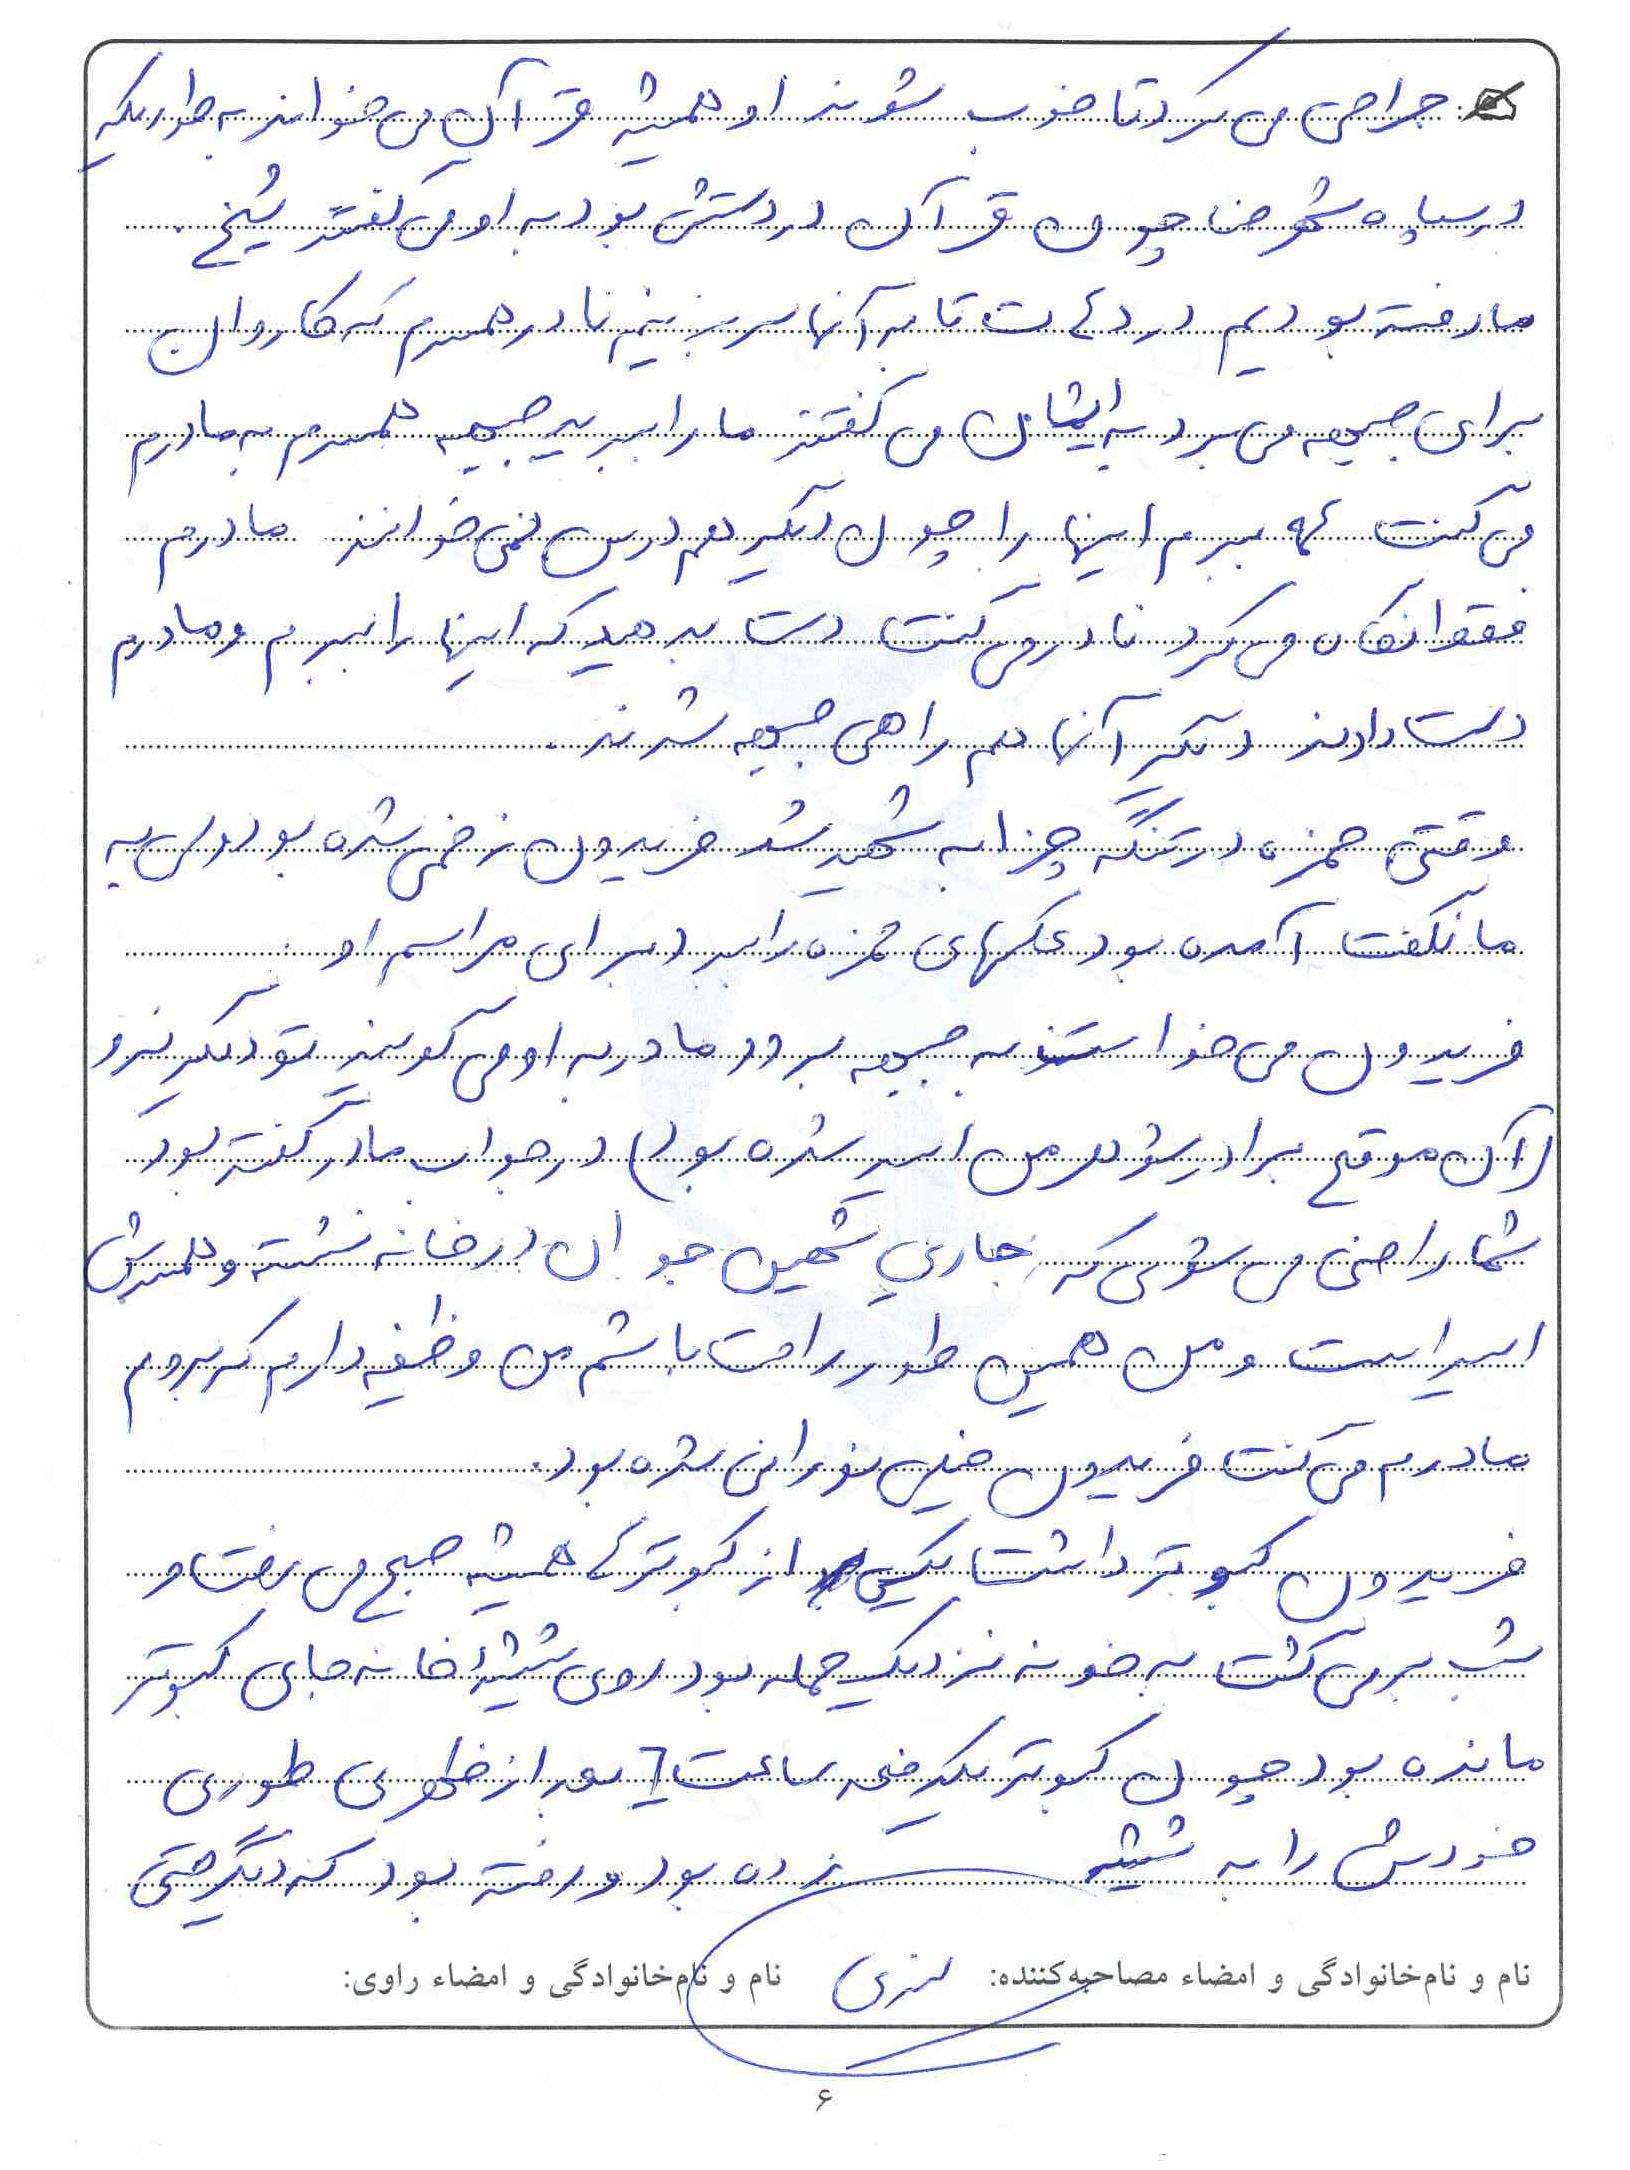 جراحی می کرد تا خوب شوند او همیشه قرآن می خواند به طوریکه
در سپاه شهرضا چون قرآن در دستش بود به او می گفتند شیخ .
ما رفته بودیم در دشت تا به آنها سر بزنیم نادر همسرم که کاروان
برای جبهه می برد به ایشان می گفتند ما را ببرید جبهه همسرم به مادرم
می گفت عمه ببرم اینها را چون دیگر هم درس نمی خوانند مادرم
فقط نگاه می کرد نادر می گفت دست بدهید که اینها را ببرم و مادرم
دست دادند دیگر آنها هم راهی جبهه شدند .
وقتی حمزه در تنگه چزابه شهید شد فریدون زخمی شده بود ولی به
ما نگفت آمده بود عکسهای حمزه را ببرد برای مراسم او .
فریدون می خواست به جبهه برود مادر به او می گویند تو دیگر نرو
(آن موقع برادر شوهر من اسیر شده بود) در جواب مادر گفته بود
شما راضی می شوی که جاری شهین جوان در خانه نشسته و همسرش
اسیر است و من همین طور راحت باشم من وظیفه دارم که بروم
مادرم می گفت فریدون خیلی نورانی شده بود .
فریدون کبوتر داشت یکی از کبوترها همیشه صبح می رفت و
شب بر می گشت به خونه نزدیک حمله بود روی شیشه خانه جای کبوتر
مانده بود چون کبوتر یکدفعه ساعت ۲ بعد از ظهری طوری
خودش را به شیشه زده بود و رفته بود که دیگر حتی
نام و نام‌خانوادگی و امضاء مصاحبه‌کننده: نام و نام‌خانوادگی و امضاء راوی:
۶